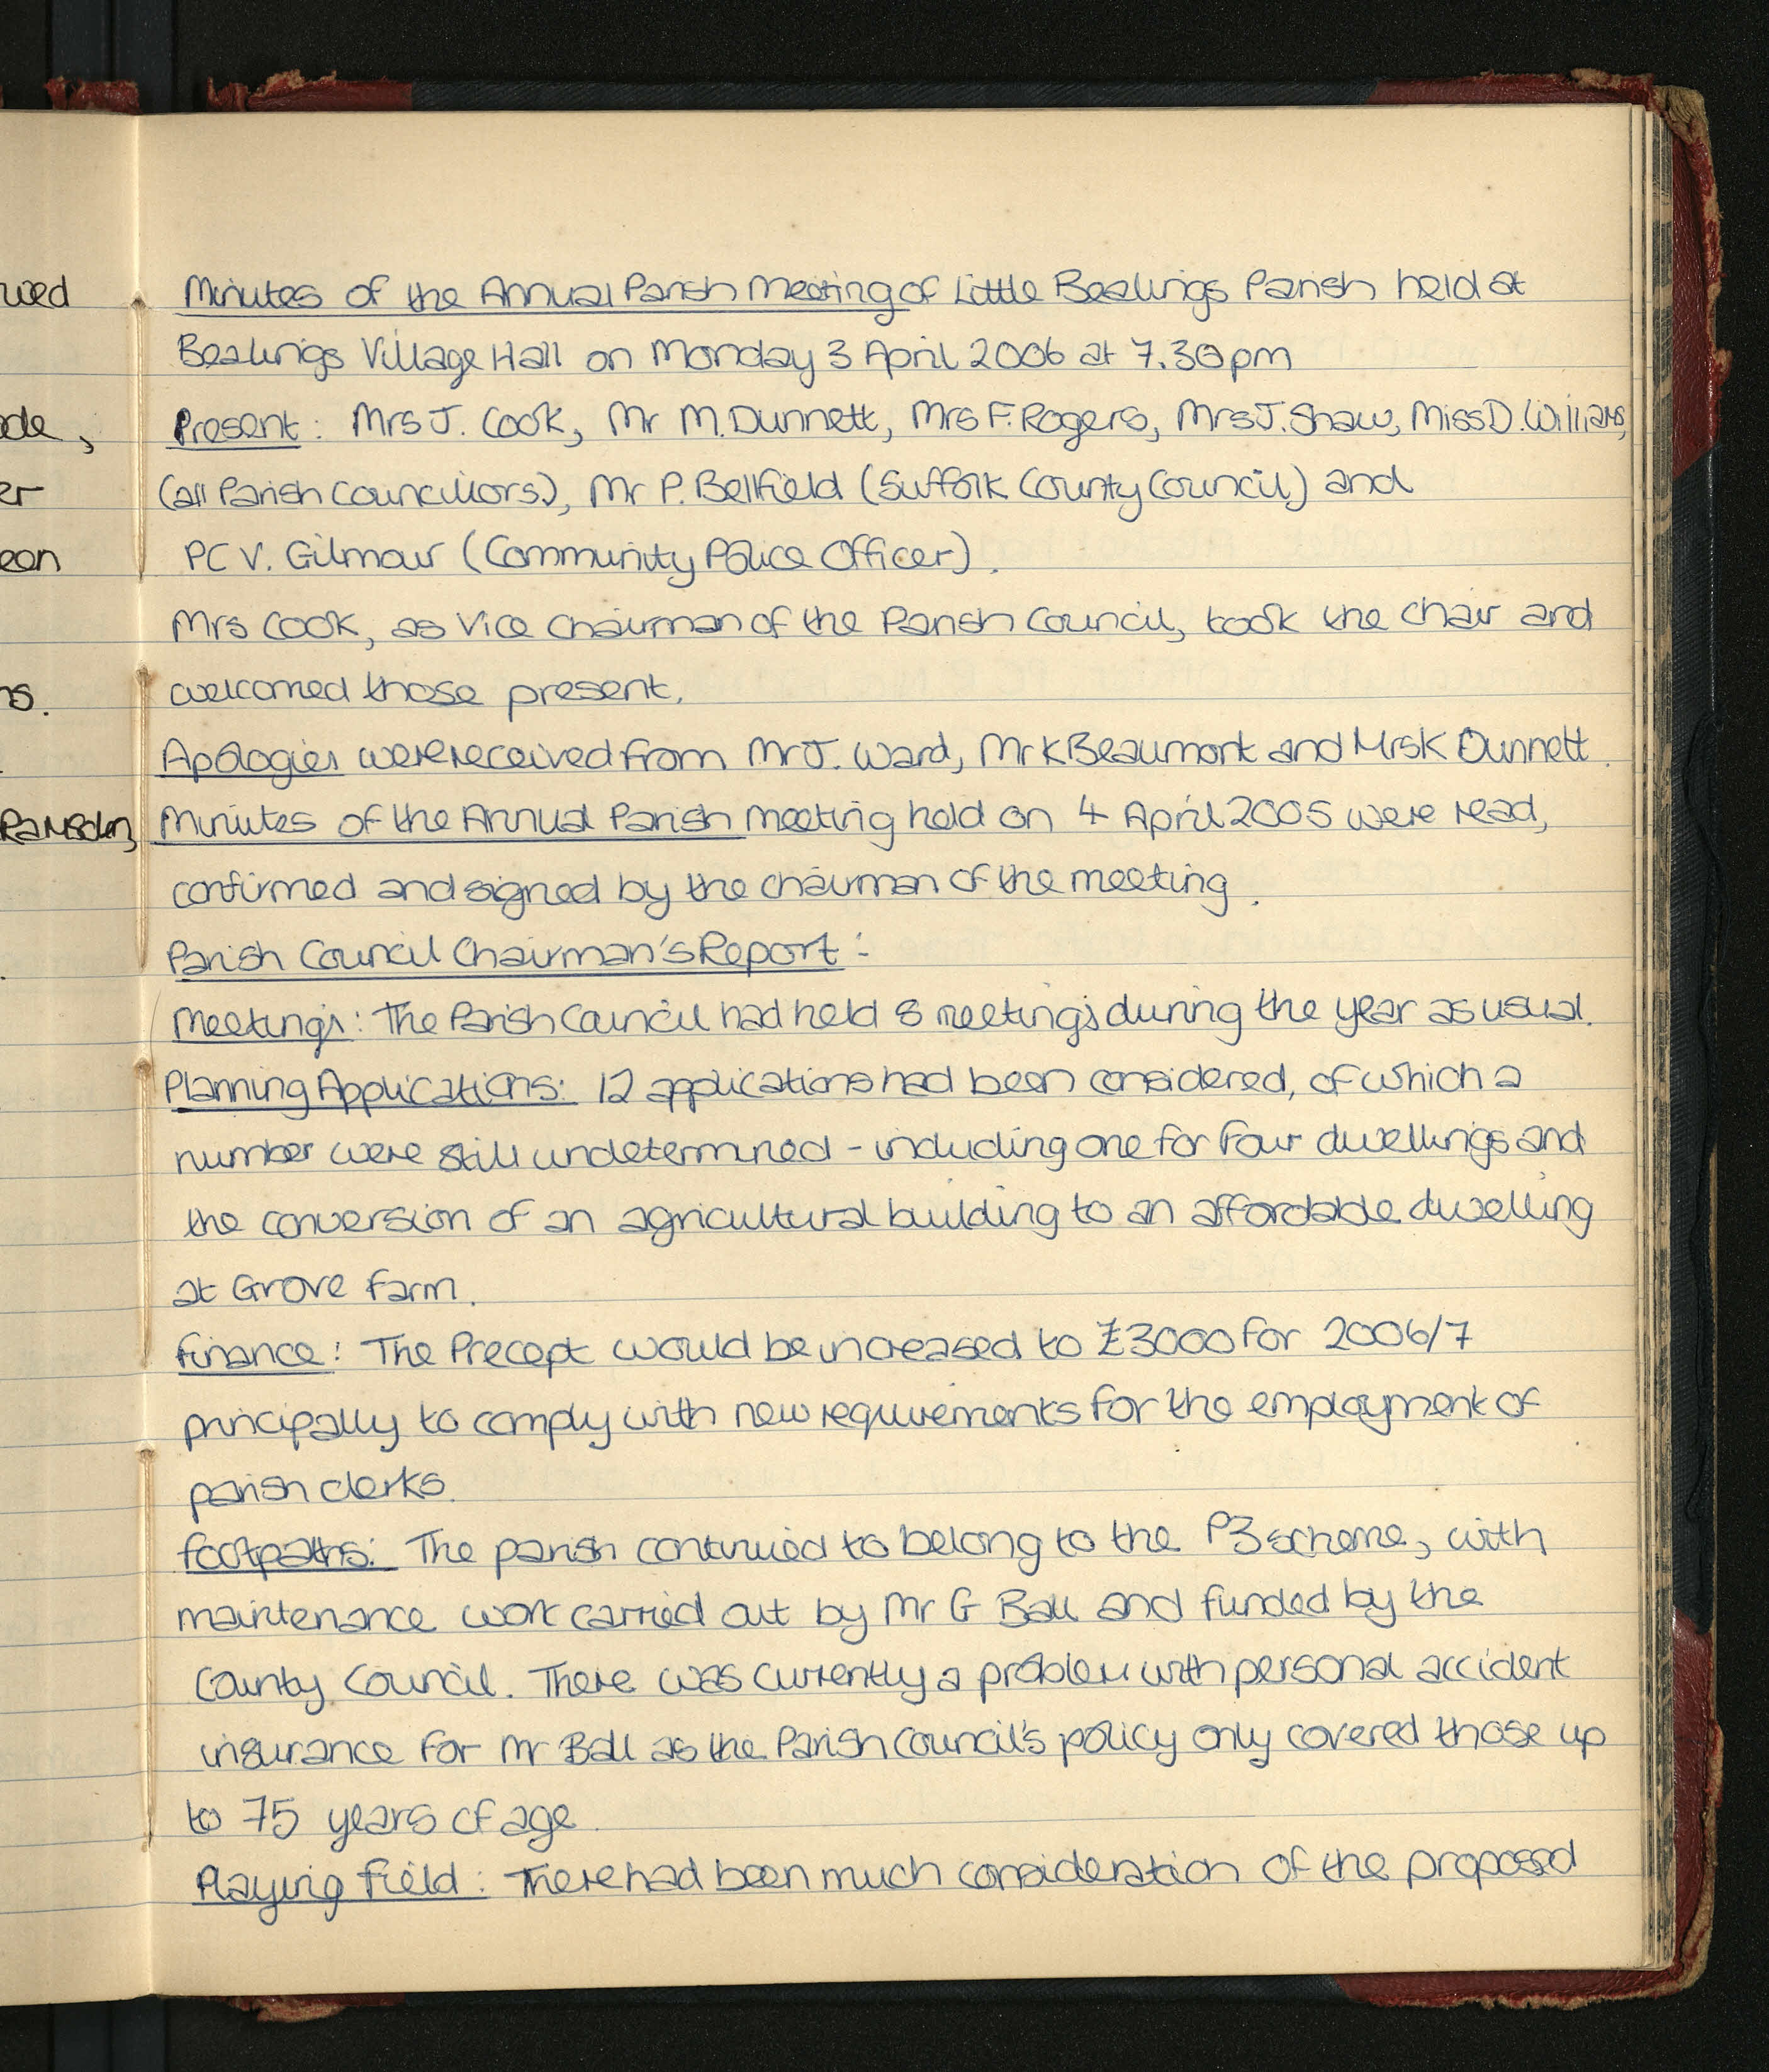 wed
ode,
er
eon
ns.
Ramsden,
Minutes of the Annual Parish Meeting of Little Bealings Parish held at
Bealings Village Hall on Monday 3 April 2006 at 7.30pm
Present: Mrs J. Cook, Mr M. Dunnett, Mrs F. Rogers, Mrs J. Shaw, Miss D. Williams,
(all Parish Councillors), Mr P. Bellfield (Suffolk County Council) and
PC V. Gilmour (Community Police Officer).
Mrs Cook, as Vice Chairman of the Parish Council, took the chair and
welcomed those present.
Apologies were received from Mr J. Ward, Mr K Beaumont and Mrs K Dunnett.
Minutes of the Annual Parish Meeting held on 4 April 2005 were read,
confirmed and signed by the chairman of the meeting.
Parish Council Chairman's Report:
Meetings: The Parish Council had held 8 meetings during the year as usual.
Planning Applications: 12 applications had been considered, of which a
number were still undetermined - including one for four dwellings and
the conversion of an agricultural building to an affordable dwelling
at Grove Farm.
Finance: The Precept would be increased to £3000 for 2006/7
principally to comply with new requirements for the employment of
parish clerks.
Footpaths: The parish continued to belong to the P3 scheme, with
maintenance work carried out by Mr G Ball and funded by the
County Council. There was currently a problem with personal accident
insurance for Mr Ball as the Parish Council's policy only covered those up
to 75 years of age.
Playing Field: There had been much consideration of the proposed